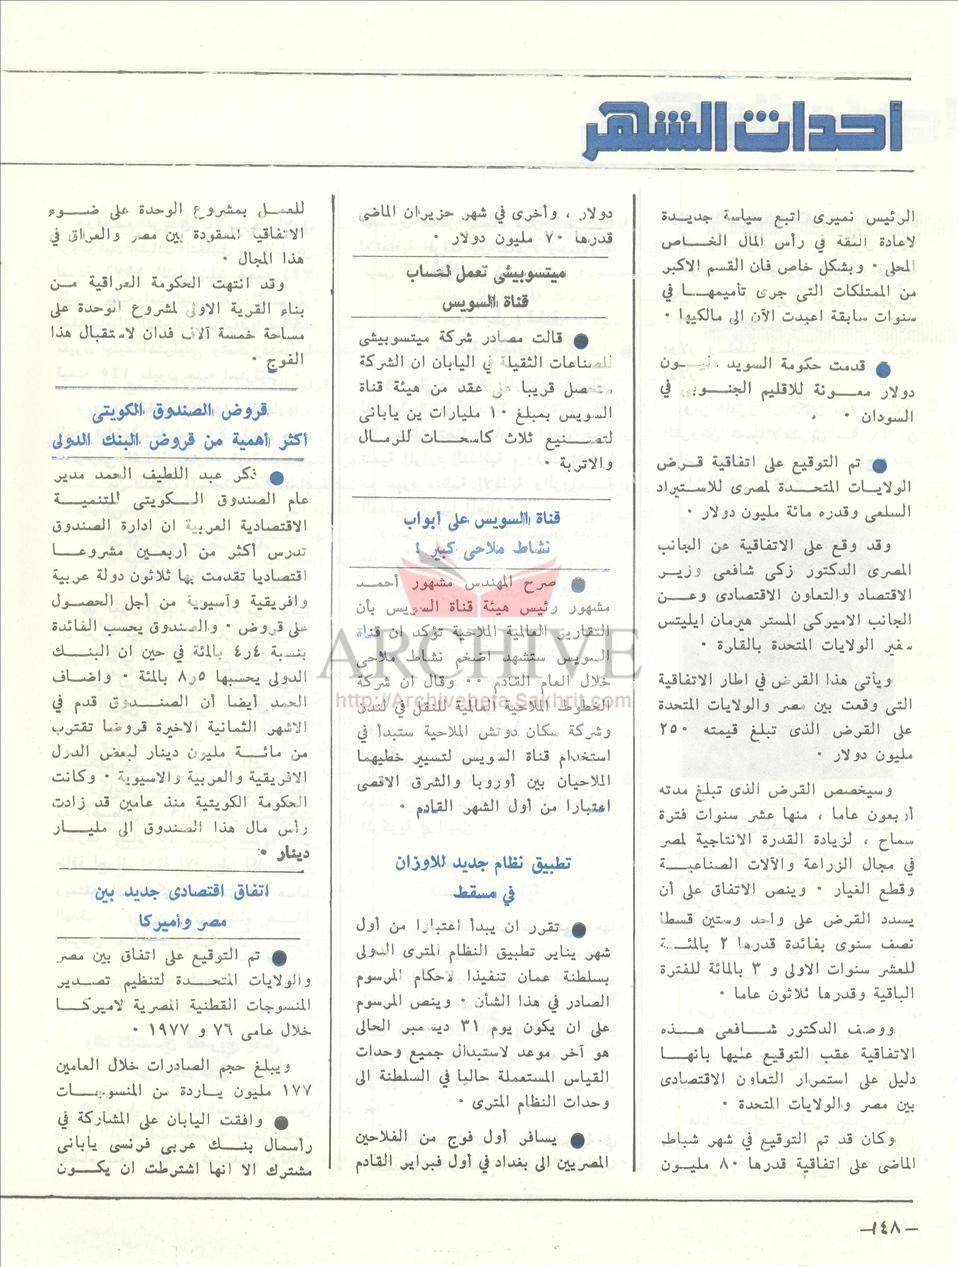 أحداث الشهر
الرئيس نميرى اتبع سياسة جديدة
لاعادة الثقة في رأس المال الخاص
المحلى ٠ وبشكل خاص فان القسم الاكبر
من الممتلكات التى جرى تأميمها في
سنوات سابقة اعيدت الآن الى مالكيها ٠
● قدمت حكومة السويد مليون
دولار معونة للاقليم الجنوبى في
السودان ٠
● تم التوقيع على اتفاقية قرض
الولايات المتحدة لمصرى للاستيراد
السلعى وقدره مائة مليون دولار ٠
وقد وقع على الاتفاقية عن الجانب
المصرى الدكتور زكى شافعى وزير
الاقتصاد والتعاون الاقتصادى وعن
الجانب الاميركى المستر هيرمان ايليتس
سفير الولايات المتحدة بالقارة ٠
ويأتى هذا القرض في اطار الاتفاقية
التى وقعت بين مصر والولايات المتحدة
على القرض الذى تبلغ قيمته ٢٥٠
مليون دولار ٠
وسيخصص القرض الذى تبلغ مدته
أربعون عاما ، منها عشر سنوات فترة
سماح ، لزيادة القدرة الانتاجية لمصر
في مجال الزراعة والآلات الصناعية
وقطع الغيار ٠ وينص الاتفاق على أن
يسدد القرض على واحد وستين قسطا
نصف سنوى بفائدة قدرها ٢ بالمئة
للعشر سنوات الاولى و ٣ بالمائة للفترة
الباقية وقدرها ثلاثون عاما ٠
ووصف الدكتور شافعى هذه
الاتفاقية عقب التوقيع عليها بانها
دليل على استمرار التعاون الاقتصادى
بين مصر والولايات المتحدة ٠
وكان قد تم التوقيع في شهر شباط
الماضى على اتفاقية قدرها ٨٠ مليون
دولار ، وأخرى في شهر حزيران الماضى
قدرها ٧٠ مليون دولار ٠
ميتسوبيشى تعمل لحساب
قناة السويس
● قالت مصادر شركة ميتسوبيشى
للصناعات الثقيلة في اليابان ان الشركة
ستحصل قريبا على عقد من هيئة قناة
السويس بمبلغ ١٠ مليارات ين يابانى
لتصنيع ثلاث كاسحات للرمال
والاتربة ٠
قناة السويس على أبواب
نشاط ملاحى كبير !
● صرح المهندس مشهور أحمد
مشهور رئيس هيئة قناة السويس بأن
التقارير العالمية الملاحية تؤكد ان قناة
السويس ستشهد اضخم نشاط ملاحى
خلال العام القادم ٠٠ وقال ان شركة
الخطوط الملاحية العالمية للنقل في لندن
وشركة سكان دوتش الملاحية ستبدأ في
استخدام قناة السويس لتسيير خطيهما
الملاحيان بين أوروبا والشرق الاقصى
اعتبارا من أول الشهر القادم ٠
تطبيق نظام جديد للاوزان
في مسقط
● تقرر ان يبدأ اعتبارا من أول
شهر يناير تطبيق النظام المترى الدولى
بسلطنة عمان تنفيذا لاحكام المرسوم
الصادر في هذا الشأن ٠ وينص المرسوم
على ان يكون يوم ٣١ ديسمبر الحالى
هو آخر موعد لاستبدال جميع وحدات
القياس المستعملة حاليا في السلطنة الى
وحدات النظام المترى ٠
● يسافر أول فوج من الفلاحين
المصريين الى بغداد في أول فبراير القادم
للعمل بمشروع الوحدة على ضوء
الاتفاقية المعقودة بين مصر والعراق في
هذا المجال ٠
وقد انتهت الحكومة العراقية من
بناء القرية الاولى لمشروع الوحدة على
مساحة خمسة آلاف فدان لاستقبال هذا
الفوج ٠
قروض الصندوق الكويتى
أكثر أهمية من قروض البنك الدولى
● ذكر عبد اللطيف الحمد مدير
عام الصندوق الكويتى للتنمية
الاقتصادية العربية ان ادارة الصندوق
تدرس أكثر من أربعين مشروعا
اقتصاديا تقدمت بها ثلاثون دولة عربية
وافريقية وآسيوية من أجل الحصول
على قروض ٠ والصندوق يحسب الفائدة
بنسبة ٤ر٤ بالمائة في حين ان البنك
الدولى يحسبها ٥ر٨ بالمئة ٠ واضاف
الحمد أيضا أن الصندوق قدم في
الاشهر الثمانية الاخيرة قروضا تقترب
من مائة مليون دينار لبعض الدول
الافريقية والعربية والاسيوية ٠ وكانت
الحكومة الكويتية منذ عامين قد زادت
رأس مال هذا الصندوق الى مليار
دينار ٠
اتفاق اقتصادى جديد بين
مصر وأميركا
● تم التوقيع على اتفاق بين مصر
والولايات المتحدة لتنظيم تصدير
المنسوجات القطنية المصرية لاميركا
خلال عامى ٧٦ و ١٩٧٧ ٠
ويبلغ حجم الصادرات خلال العامين
١٧٧ مليون ياردة من المنسوجات
● وافقت اليابان على المشاركة في
رأسمال بنك عربى فرنسى يابانى
مشترك الا انها اشترطت ان يكون
ARCHIVE
http://Archivebeta.Sakhrit.com
—١٤٨—